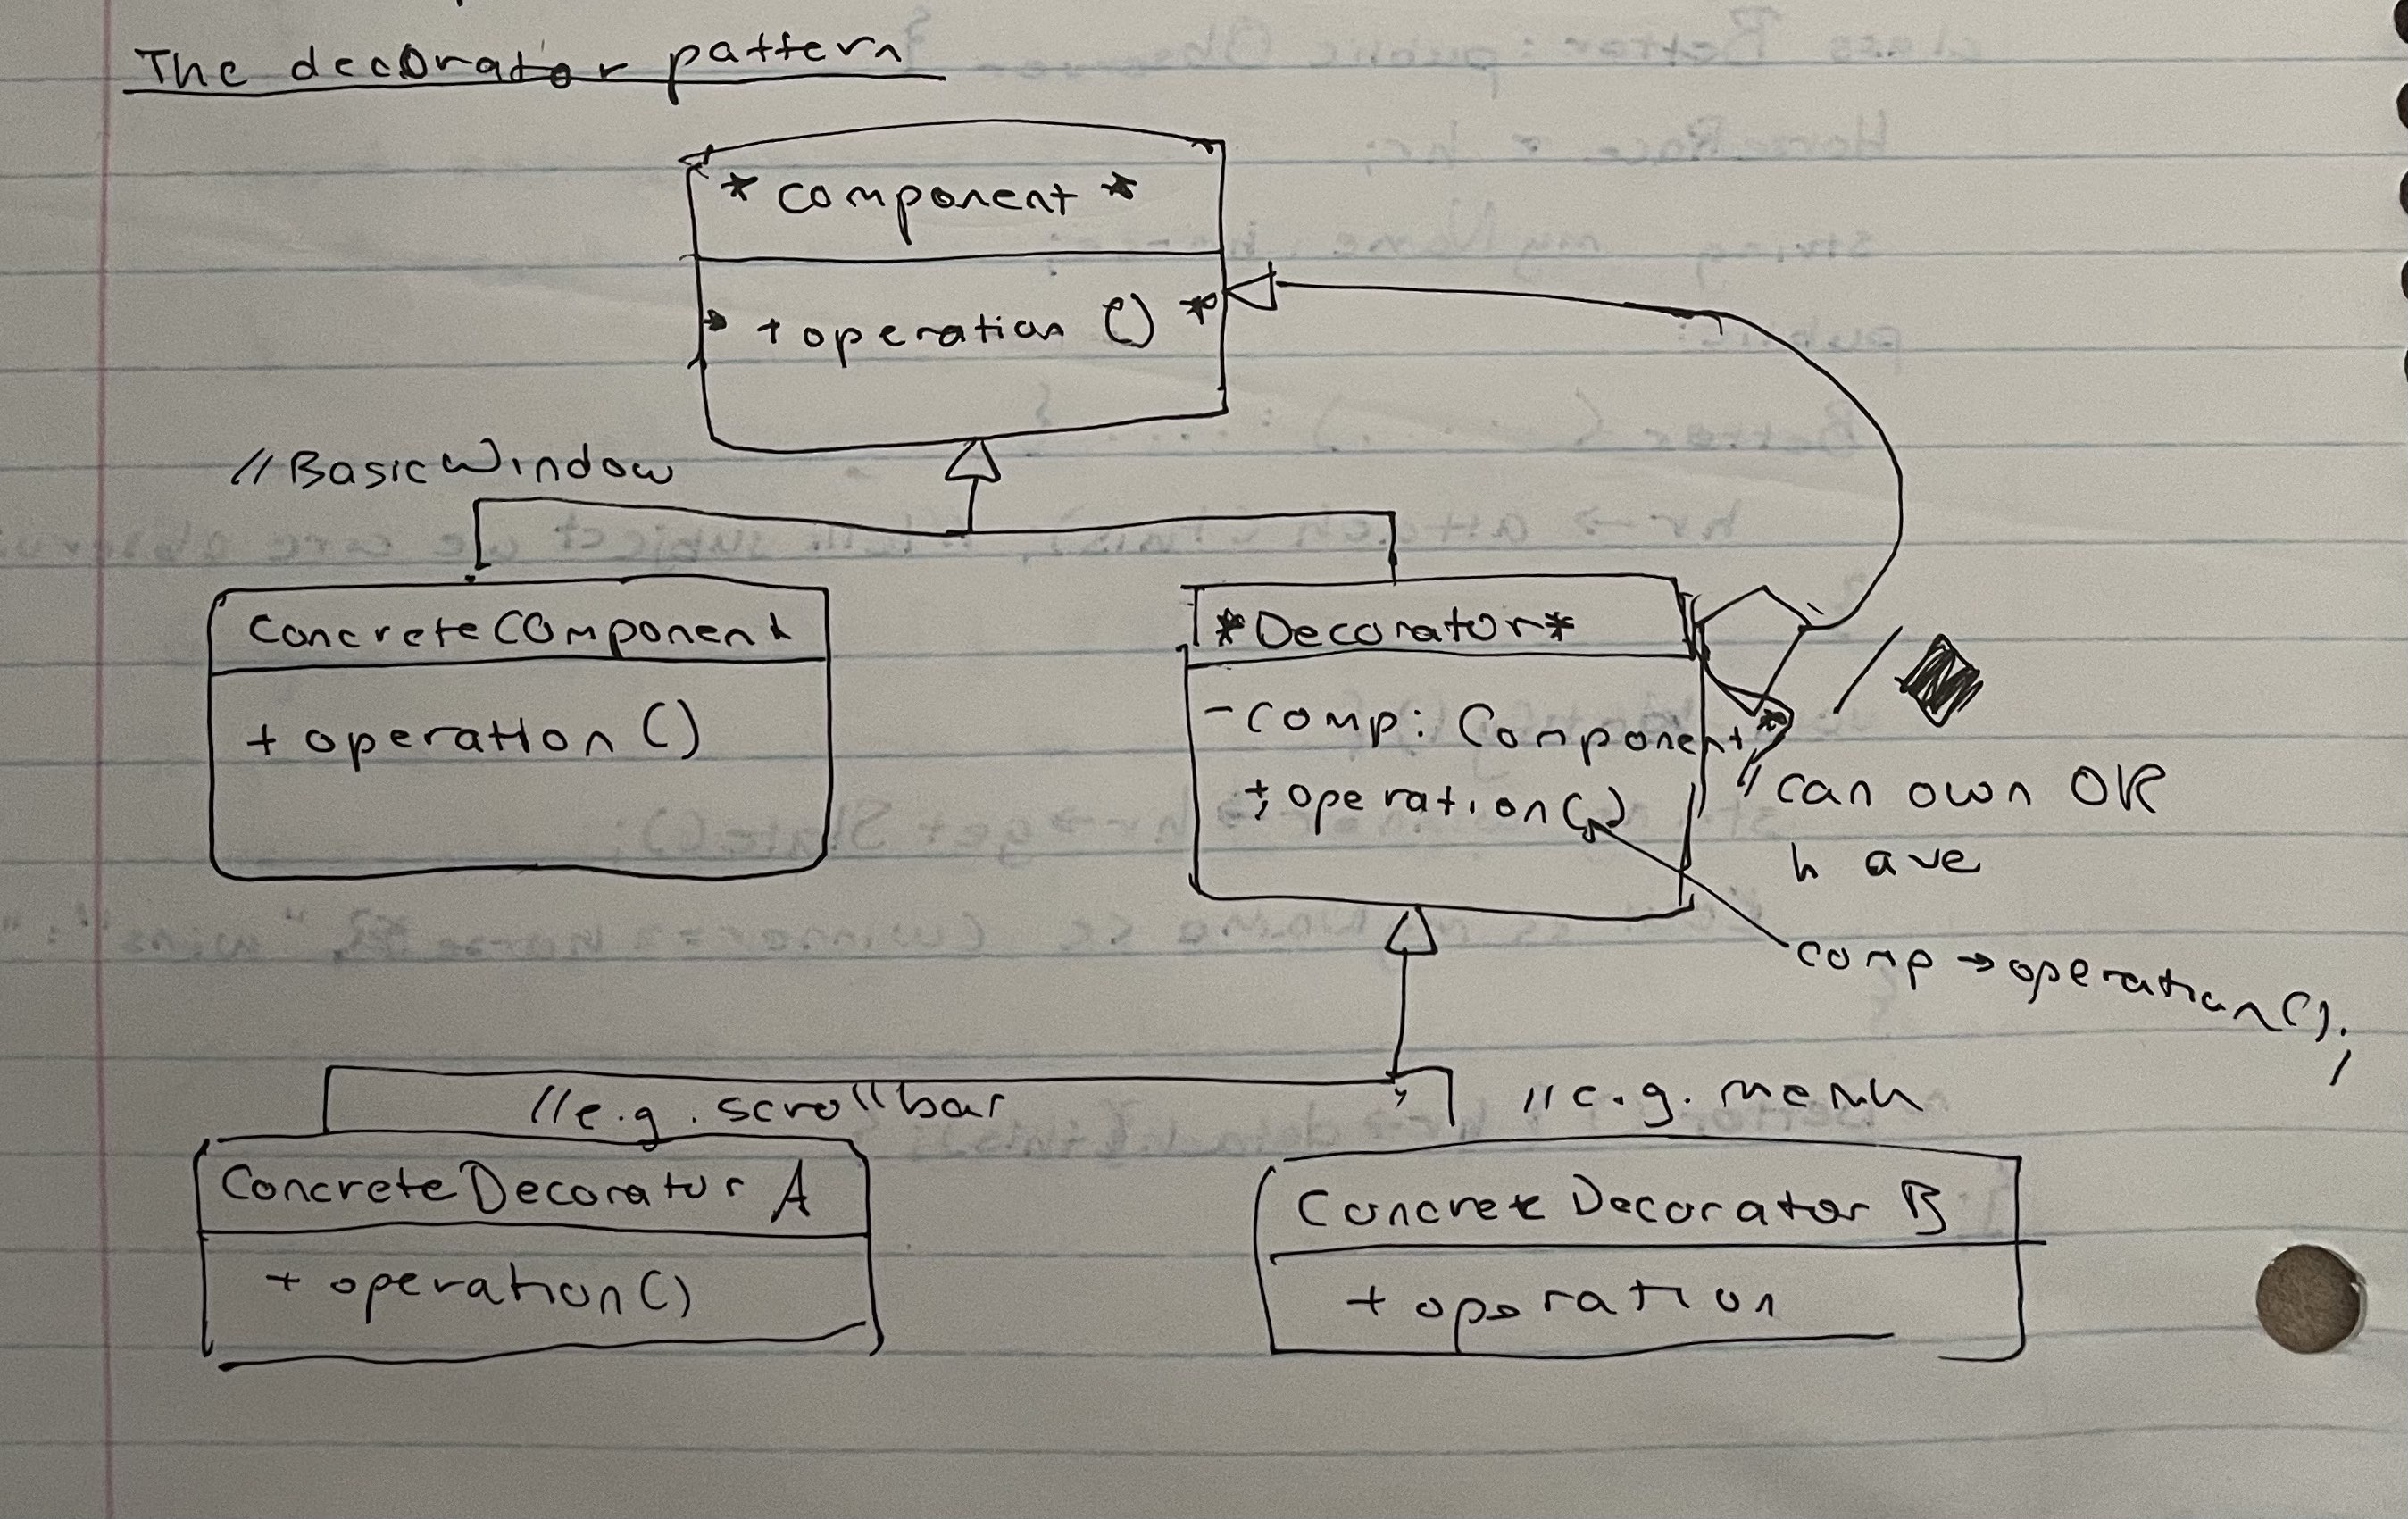 The decorator pattern
* component *
* + operation () *
// BasicWindow
ConcreteComponent
+ operation ()
*Decorator*
- comp: Component*
+ operation()
// can own OR
have
comp → operation();
// e.g. scrollbar
// e.g. menu
ConcreteDecorator A
+ operation()
Concrete Decorator B
+ operation